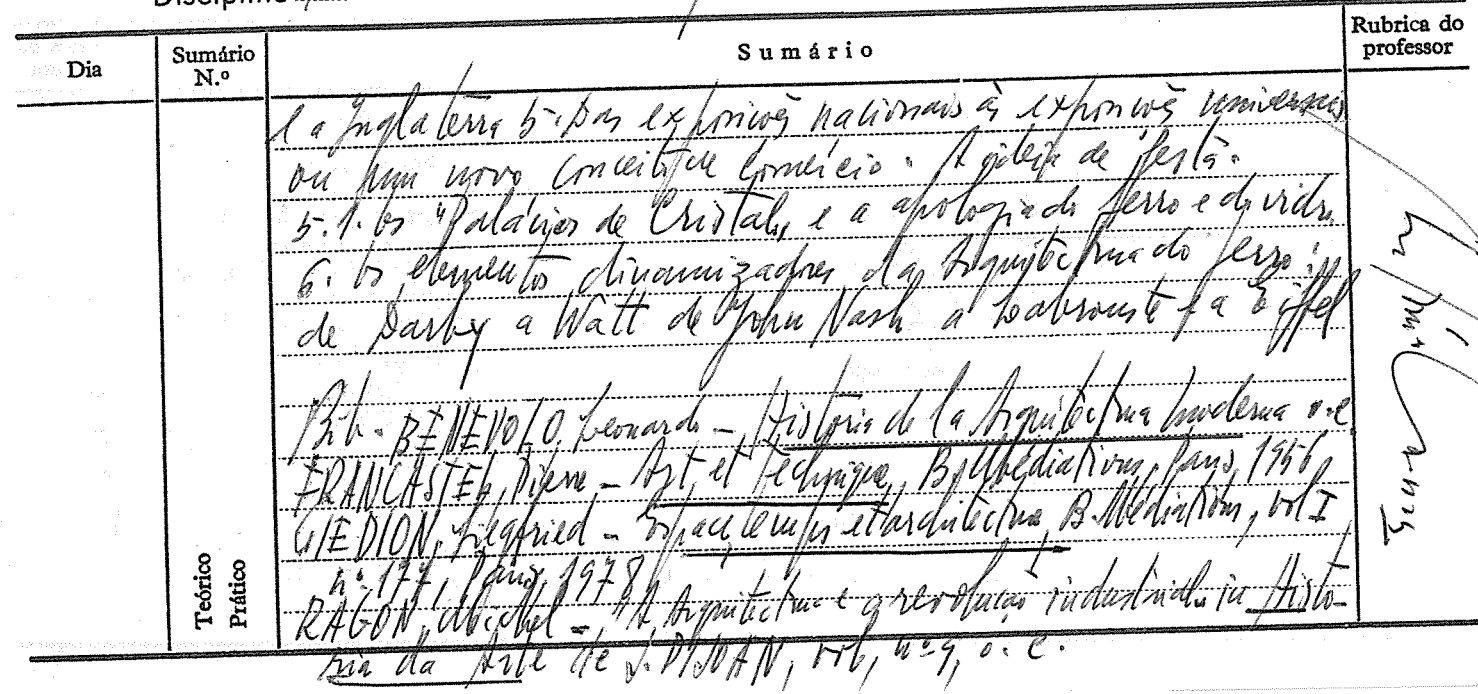 Disciplina
Dia
Sumário N.º
Sumário
Rubrica do professor
e a Inglaterra 5. Das exposições nacionais às exposições universais
ou um novo conceito de Comércio. A ideia de festa.
5.1. Os "Palácios de Cristal" e a apologia do ferro e do vidro.
6. Os elementos dinamizadores da Arquitectura do ferro:
de Darby a Watt de John Nash a Labrouste e a Eiffel
Bib. BENEVOLO, Leonardo - Historia de la Arquitectura Moderna o.c
FRANCASTEL, Pierre - Art et technique, B. Médiations, Paris, 1956
GIEDION, Siegfried - Espace, temps et architecture, B. Médiations, vol I
nº 177, Paris, 1978
RAGON, Michel - "A Arquitectura e a revolução industrial" in Histó-
ria da Arte de J. PIJOAN, vol, nº 9, o. c.
Teórico
Prático